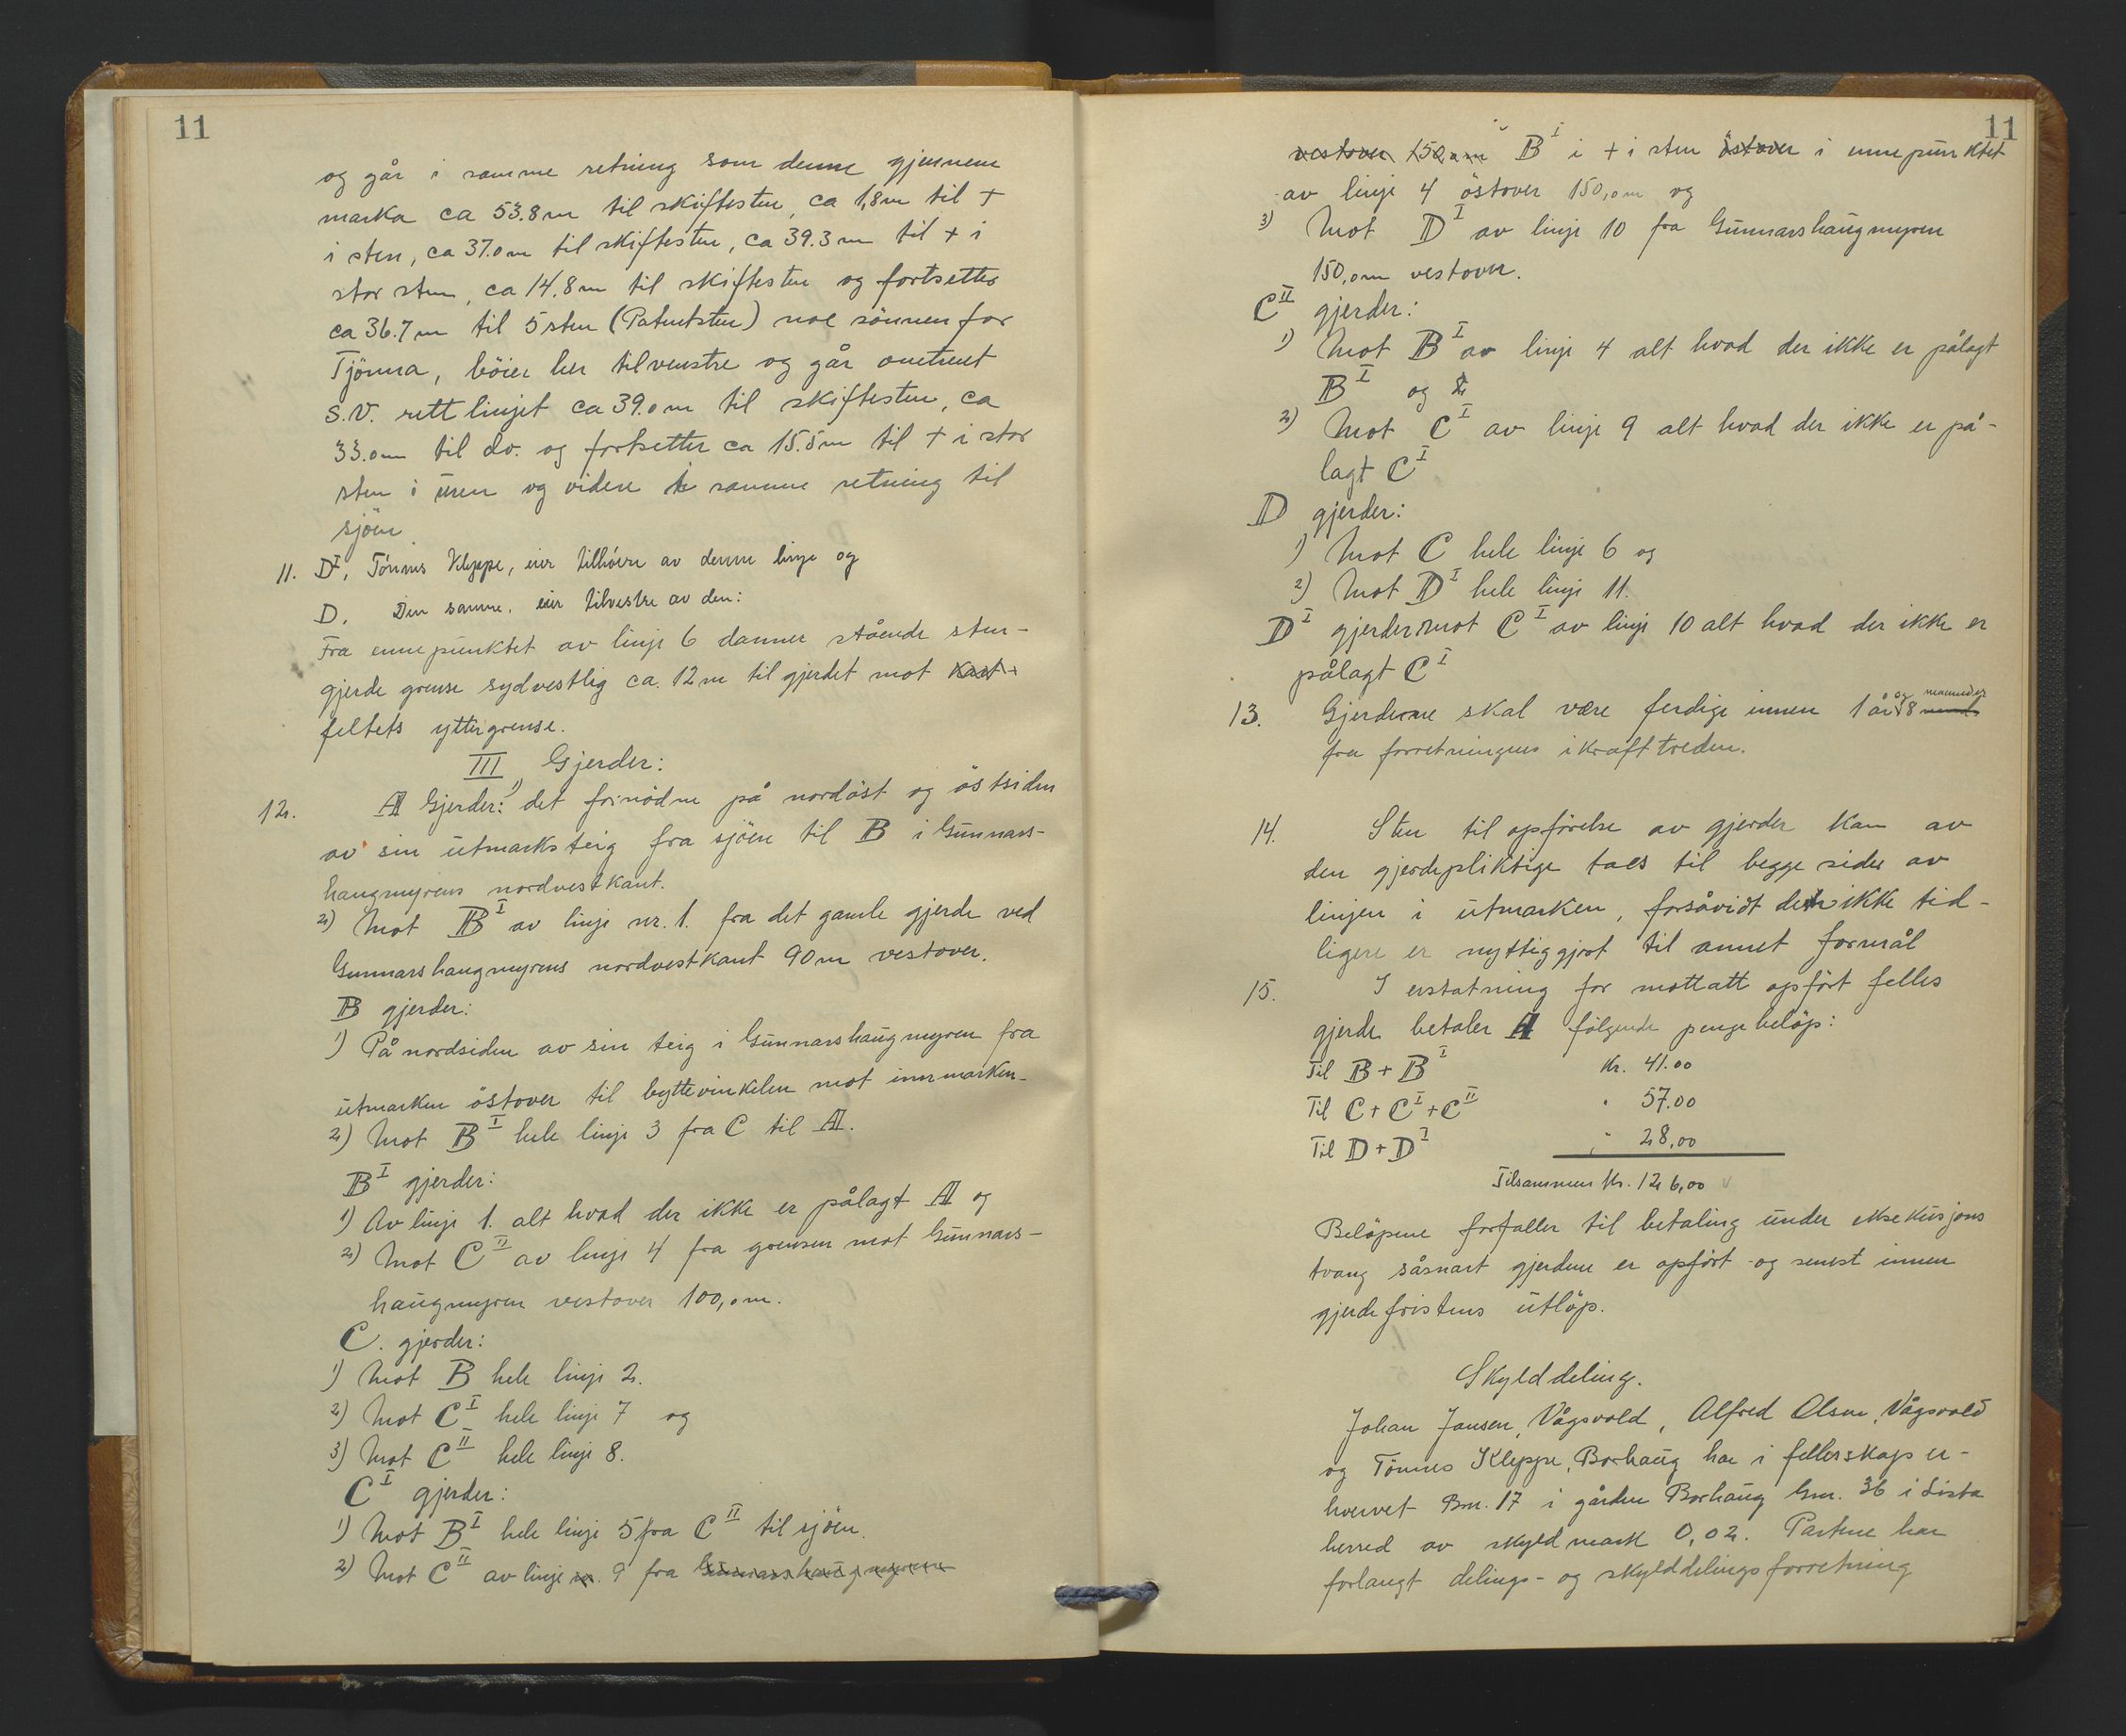 11
og går i samme retning som denne gjennem
marka ca 53.8m til skiftesten, ca 1,8m til +
i sten, ca 37.0m til skiftesten, ca 39.3m til + i
stor sten, ca 14.8m til skiftesten og fortsetter
ca 36.7m til 5 sten (Patentsten) noe sönnenfor
Tjönna, böier her tilvenstre og går omtrent
S.V. rett linjet ca 39.0m til skiftesten, ca
33.0m til do. og fortsetter ca 15.5m til + i stor
sten i uren og videre i samme retning til
sjöen.
11. D I, Tönnes Kleppe, eier tilhöire av denne linje og
D. Den samme, eier tilvestre av den:
Fra ennepunktet av linje 6 danner stående sten-
gjerde grense sydvestlig ca. 12m til gjerdet mot kart-
feltets yttergrense.
III Gjerder:
12. A Gjerder: 1) det fornödne på nordöst og östsiden
av sin utmarksteig fra sjöen til B i Gunnars-
haugmyrens nordvestkant.
2) Mot B I av linje nr. 1. fra det gamle gjerde ved
Gunnarshaugmyrens nordvestkant 90m vestover.
B gjerder:
1) På nordsiden av sin teig i Gunnarshaugmyren fra
utmarken östover til byttevinkelen mot innmarken-
2) Mot B I hele linje 3 fra C til A.
B I gjerder:
1) Av linje 1. alt hvad der ikke er pålagt A og
2) Mot C II av linje 4 fra grensen mot Gunnars-
haugmyren vestover 100,0m.
C. gjerder:
1) Mot B hele linje 2.
2) Mot C I hele linje 7 og
3) Mot C II hele linje 8.
C I gjerder:
1) Mot B I hele linje 5 fra C II til sjöen.
2) Mot C II av linje nr. 9 fra Gunnarshaugmyren
11
vestover 150,0m B I i + i sten östover i ennepunktet
av linje 4 östover 150,0m og
3) Mot D I av linje 10 fra Gunnarshaugmyren
150,0m vestover.
C II gjerder:
1) Mot B I av linje 4 alt hvad der ikke er pålagt
B I og
2) Mot C I av linje 9 alt hvad der ikke er på-
lagt C I
D gjerder:
1) Mot C hele linje 6 og
2) Mot D I hele linje 11.
D I gjerder mot C I av linje 10 alt hvad der ikke er
pålagt C I
13. Gjerderne skal være ferdige innen 1 år og 8 mnd. maaneder
fra forretningens ikrafttreden.
14. Sten til opförelse av gjerder kan av
den gjerdepliktige taes til begge sider av
linjen i utmarken, forsåvidt den ikke tid-
ligere er nyttiggjort til annet formål
15. I erstatning for mottatt opfört felles
gjerde betaler A fölgende pengebelöp:
Til B + B I Kr. 41.00
Til C + C I + C II " 57.00
Til D + D I " 28,00
Tilsammen Kr. 126,00
Belöpene forfaller til betaling under eksekusjons
tvang såsnart gjerdene er opfört og senest innen
gjerdefristens utlöp.
Skylddeling.
Johan Jansen, Vågsvold, Alfred Olsen, Vågsvold
og Tönnes Kleppe, Borhaug har i fellesskap er-
hvervet Bnr. 17 i gården Borhaug Gnr. 36 i Lista
herred av skyldmark 0,02. Partene har
forlangt delings- og skylddelingsforretning